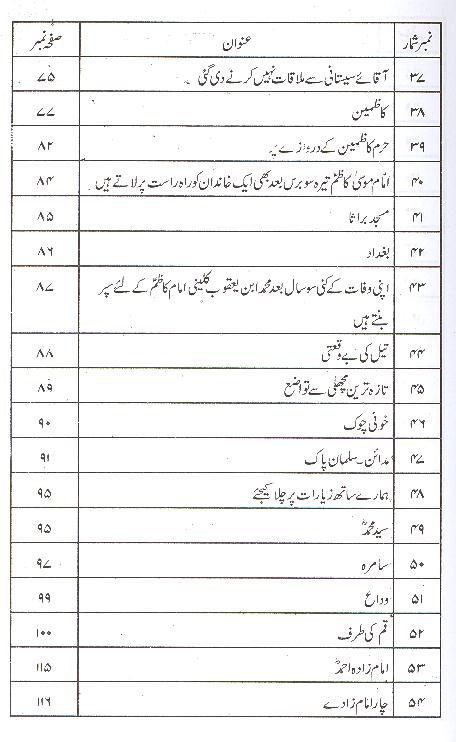 نمبر شمار عنوان صفحہ نمبر
۳۷ آقائے سیستانی سے ملاقات نہیں کرنے دی گئی ۷۵
۳۸ کاظمین ۷۷
۳۹ حرم کاظمین کے دروازے پر ۸۲
۴۰ امام موسیٰ کاظمؑ تیرہ سو برس بعد بھی ایک خاندان کو راہ راست پر لاتے ہیں ۸۴
۴۱ مسجد براثا ۸۵
۴۲ بغداد ۸۶
۴۳ اپنی وفات کے کئی سو سال بعد محمد ابن یعقوب کلینی امام کاظمؑ کے لئے سپر ۸۷
بنتے ہیں
۴۴ تیل کی بے وقعتی ۸۸
۴۵ تازہ ترین مچھلی سے تواضع ۸۹
۴۶ خونی چوک ۹۰
۴۷ مدائن۔ سلمان پاک ۹۱
۴۸ ہمارے ساتھ زیارات پر چلا کیجئے ۹۵
۴۹ سید محمدؑ ۹۵
۵۰ سامرہ ۹۷
۵۱ وداع ۹۹
۵۲ قم کی طرف ۱۰۰
۵۳ امام زادہ احمدؑ ۱۱۵
۵۴ چار امام زادے ۱۱۶